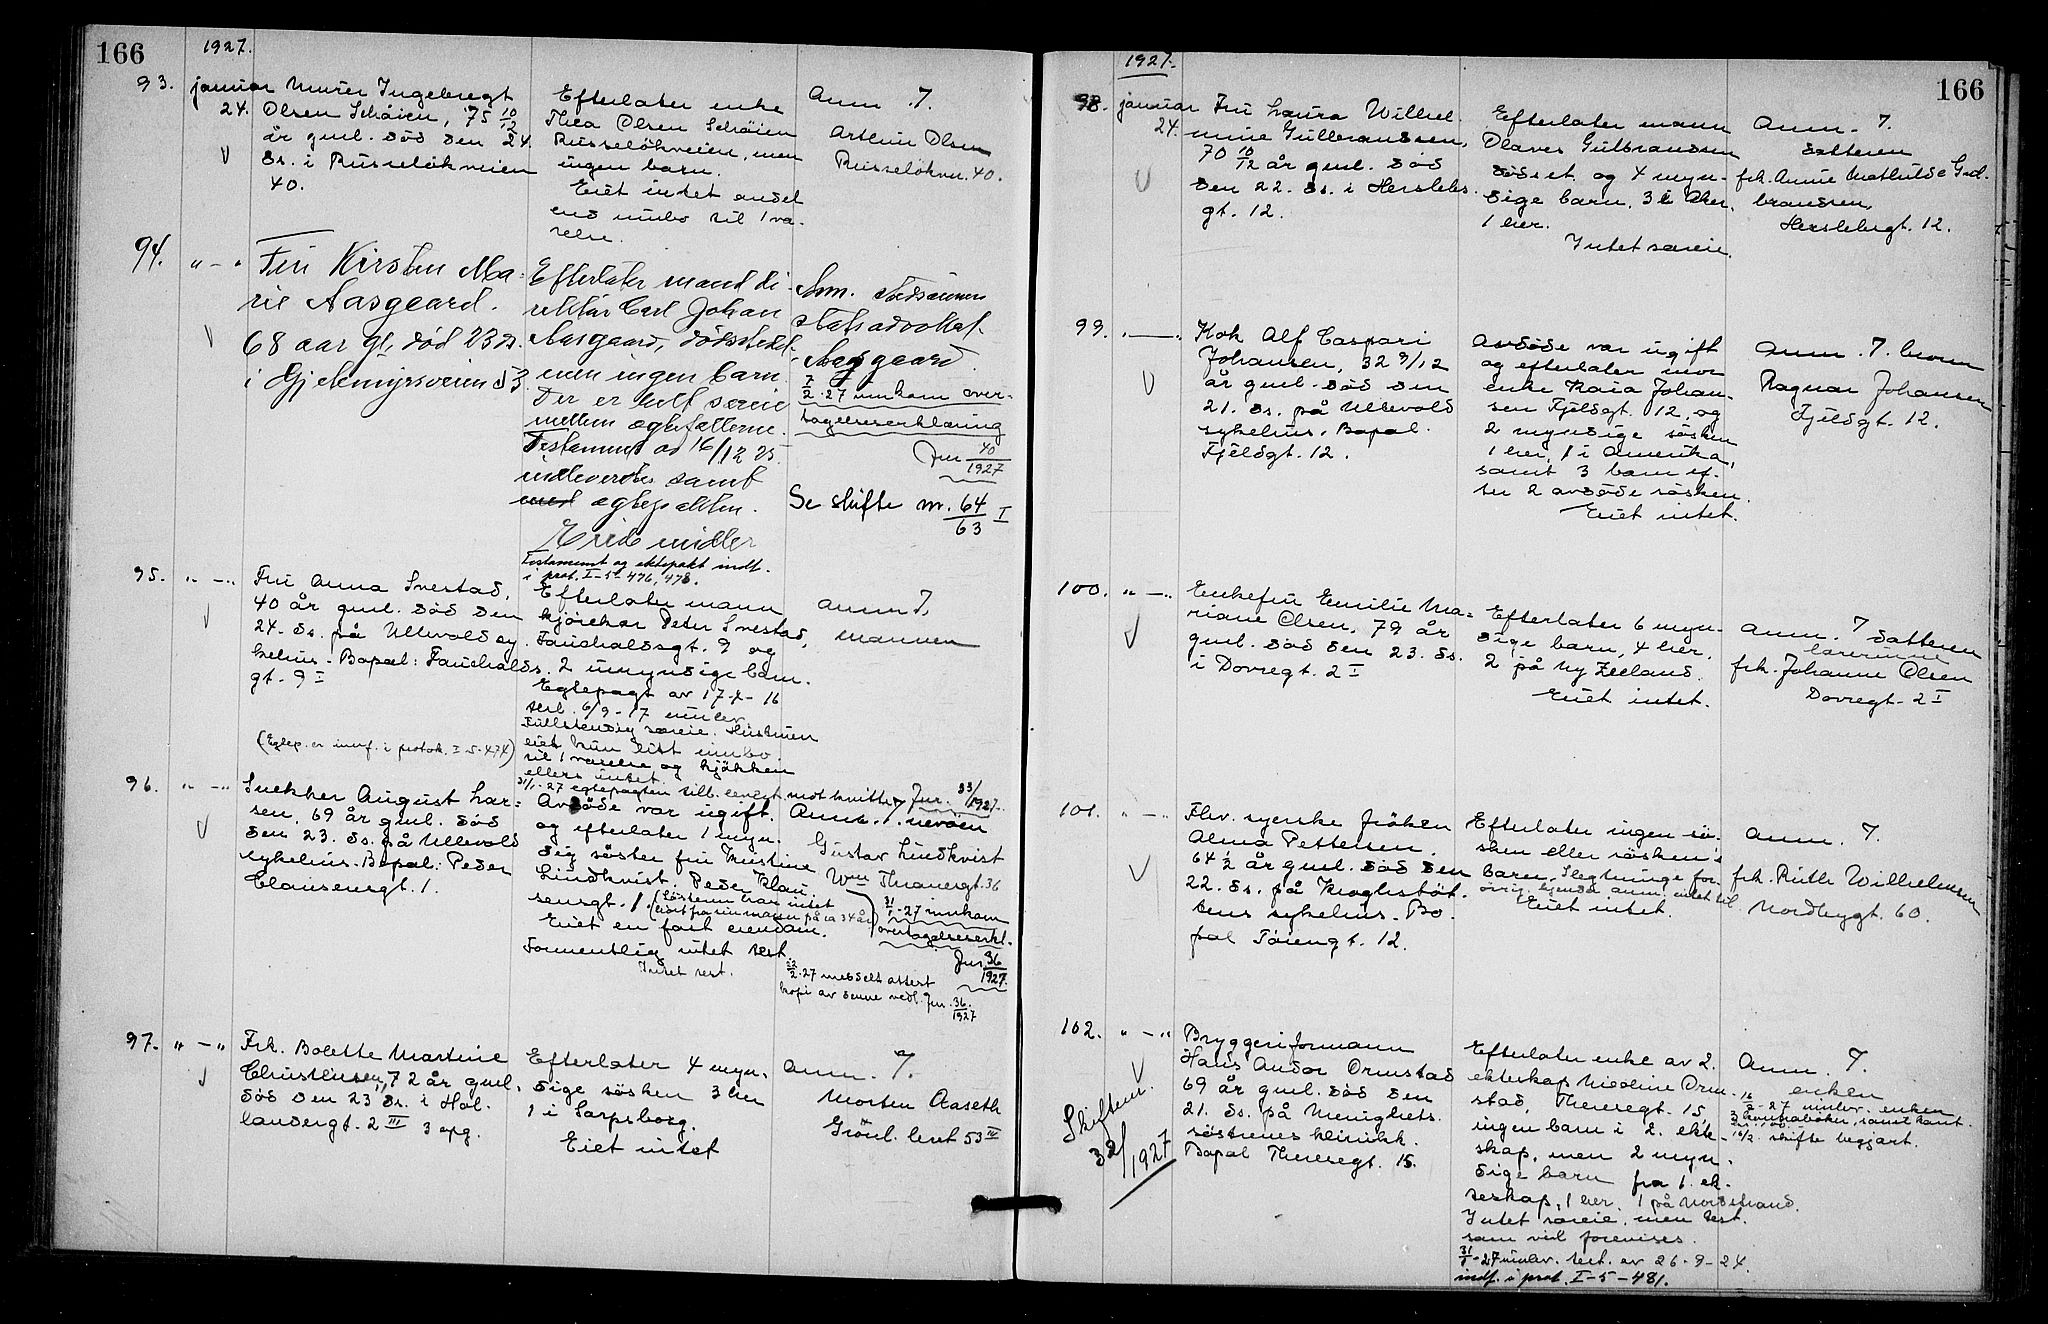 166
1927.
93. januar 24. Murer Ingebregt
Olsen Schøien, 75 10/12
år gml. død den 24.
ds. i Russeløkveien
40.
Efterlater enke
Thea Olsen Schøien
Russeløkveien, men
ingen barn.
Eiet intet andet
end innbo til 1 væ-
relse.
Anm. 7.
Arthur Olsen
Russeløkvn. 40.
94. " — " Fru Kirsten Ma-
rie Aasgaard.
68 aar gl, død 23 ds.
i Gjetemyrsveien 53
Efterlater mand di-
rektør Carl Johan
Aasgaard, dødsstedet,
men ingen barn.
Der er helt særeie
mellem ægtefællerne.
Testament ad 16/12 25
indleverdes samt
med ægtepakten.
Eiede midler
Testament og ektepakt indt.
i prot. I-5-476, 478.
Anm.
statsadvokat
Aasgaard.
7/2-27 innkom over-
tagelseserklæring
Jnr 40/1927
Se skifte nr. 64/63 I
95. " — " Fru Anna Svestad,
40 år gml. død den
24. ds. på Ullevold sy-
kehus. Bopæl: Fauchalds-
gt. 9 I
(Egtep. er innf. i protok. I-5-474)
Efterlater mann
kjørekar Peder Svestad,
Fauchaldsgt. 9 og
2 umyndige barn.
Egtepagt av 17-4-16
terl. 6/9-17 innlev.
Fullstendig særeie. Hustruen
eiet kun litt innbo
til 1 værelse og kjøkken
ellers intet.
31/1-27 egtepagten tilb. levert mot kvittg Jnr. 33/1927.
Anm 7.
mannen
96. " — " Snekker August Lar-
sen, 69 år gml. død
den 23. ds. på Ullevold
sykehus. Bopæl: Peder
Clausensgt. 1.
Avdøde var ugift
og efterlater 1 myn-
dig søster fru Kristine
Lindkvist, Peder Klau-
sensgt. 1. (Søsteren har intet
hørt fra sin mann på ca 34 år)
Eiet en fast eiendom.
Formentlig intet test.
Intet test.
Anm. 7. nevøen
Gustav Lindkvist
Wm Thranesgt. 36
31/1-27 innkom
overtagelseserkl.
Jnr 36/1927.
2-27 meddelt attest
kopi av denne vedl. Jnr. 36/1927
97. " — " Frk. Bolette Martine
Christensen, 72 år gml.
død den 23 ds. i Hol-
landergt. 2 III 3 opg.
Efterlater 4 myn-
dige søsken 3 her
1 i Sarpsborg.
Eiet intet
Anm. 7.
Morten Aaseth
Grønl. leret 53 III
1927.
166
98. januar 24. Fru Laura Wilhel-
mine Gulbrandsen,
70 10/12 år gml. død
den 22. ds. i Herslebs-
gt. 12.
Efterlater mann
Olaves Gulbrandsen
dødsst. og 4 myn-
dige barn, 3 i Aker,
1 her.
Intet særeie.
Anm. 7.
datteren
frk. Anne Mathilde Gul-
brandsen,
Herslebsgt. 12.
99. " — " Kok Alf Caspari
Johansen, 32 9/12
år gml. død den
21. ds. på Ullevold
sykehus. Bopæl.
Fjeldgt. 12.
Avdøde var ugift
og efterlater mor
enke Kaia Johan-
sen Fjeldgt. 12, og
2 myndige søsken
1 her, 1 i Amerika,
samt 3 barn ef-
ter 2 avdøde søsken.
Eiet intet.
Anm. 7. broren
Ragnar Johansen
Fjeldgt. 12.
100. " — " Enkefru Emilie Ma-
riane Olsen, 79 år
gml. død den 23. ds.
i Dovregt. 2 I
Efterlater 6 myn-
dige barn, 4 her,
2 på Ny Zeeland.
Eiet intet.
Anm. 7 datteren
lærerinne
frk. Johanne Olsen
Dovregt. 2 I
101. " — " Fhv. syerske frøken
Alma Pettersen.
64 1/2 år gml. død den
22. ds. på Kroghstøt-
tens sykehus. Bo-
pæl Tøiengt. 12.
Efterlater ingen sø-
sken eller søsken's
barn. Slegtninge for-
øvrig kjender anm. intet til.
Eiet intet.
Anm. 7.
frk. Ruth Wilhelmsen
Nordbygt. 60.
102. " — " Bryggeriformann
Hans Andor Ormstad
69 år gml. død den
21. ds. på Menighets-
søstrenes klinikk.
Bopæl Theresegt. 15.
Skiftenr.
32/1927
Efterlater enke av 2.
ekteskap Nicoline Orm-
stad, Theresegt. 15,
ingen barn i 2. ekte-
skap, men 2 myn-
dige barn fra 1. ek-
teskap, 1 her, 1 på Nordstrand.
Intet særeie, men test.
som vil forevises.
31/1-27 innlev. test. av 26-9-24.
indf. i prot. I-5-481.
Anm. 7.
enken
16/2-27 innlev. enken
3 bankbøker, samt kont.
16/2. skifte begjært.